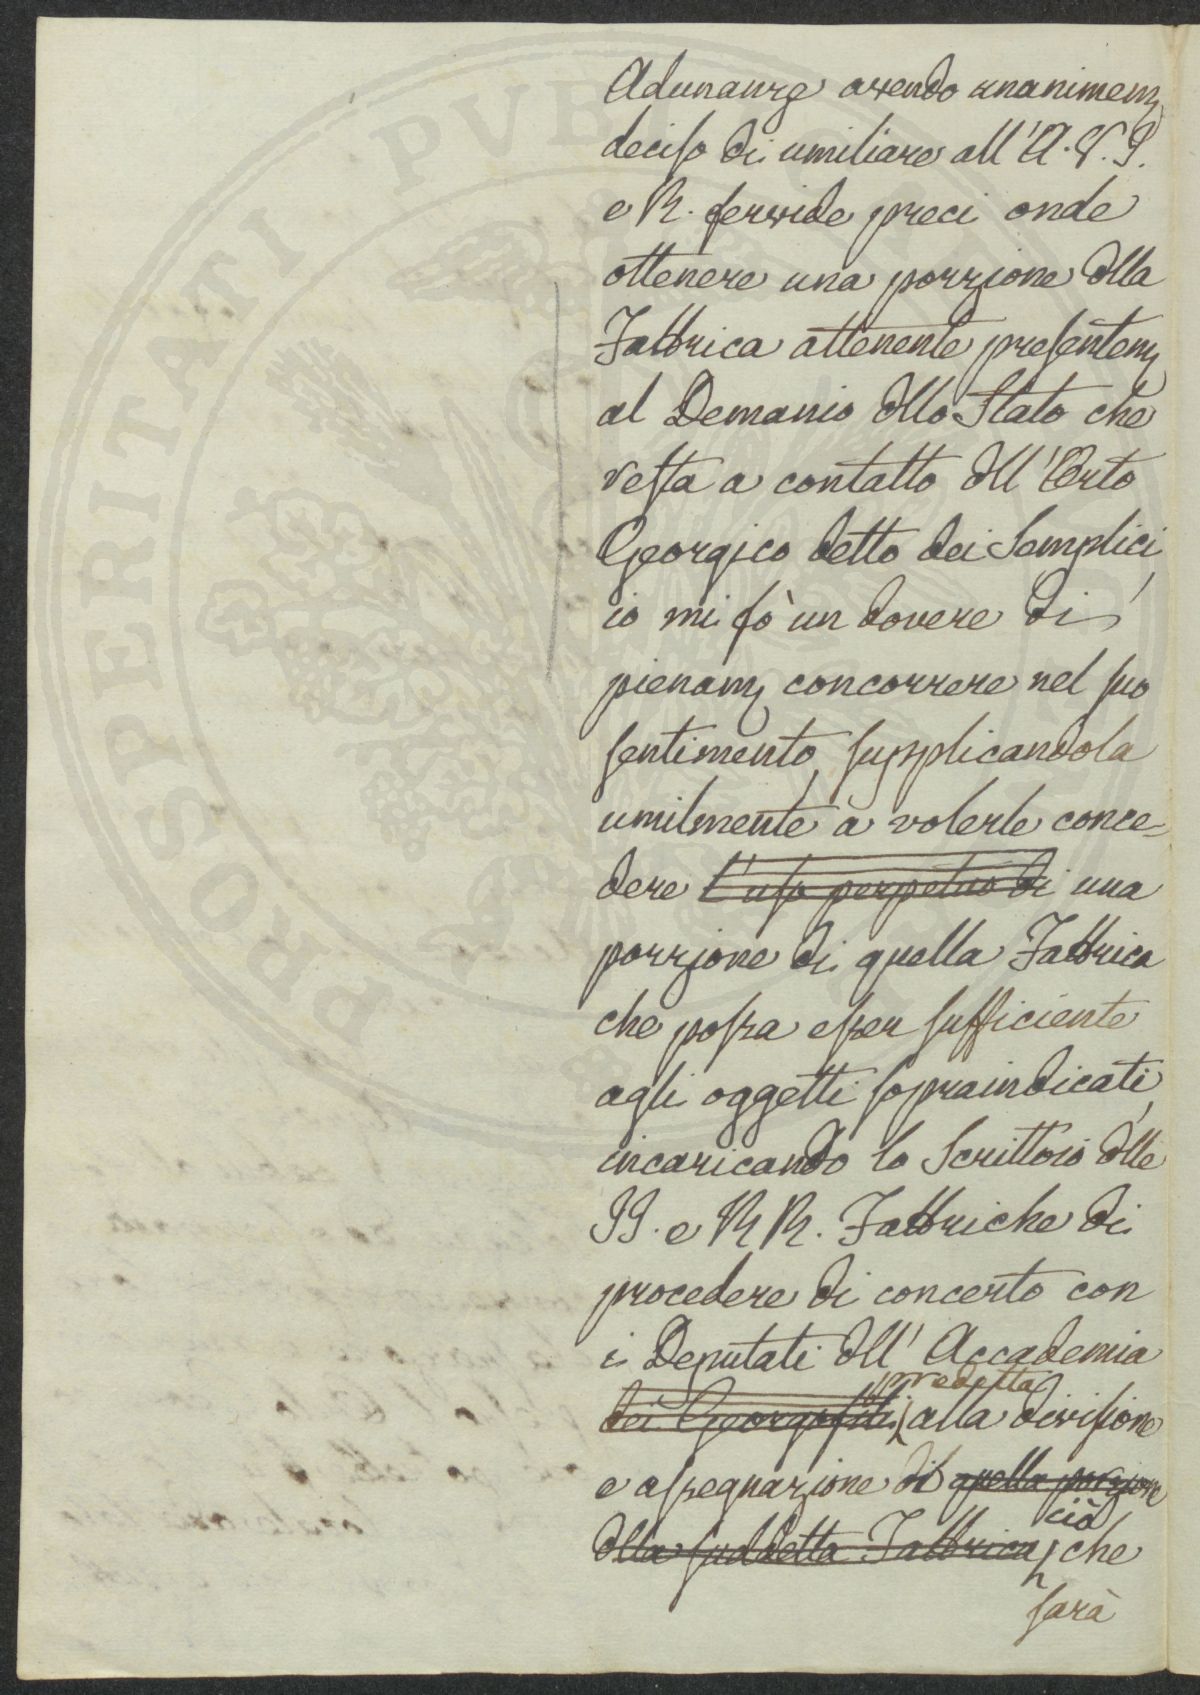 Adunanze avendo unanimem
deciso di umiliare all'A. V. I.
e R. fervide preci onde
ottenere una porzione dlla
Fabbrica attenente presentem
al Demanio dllo Stato che
resta a contatto dll'Orto
Georgico detto dei Semplici,
io mi fò un dovere di
pienam concorrere nel suo
sentimento, supplicandola
umilmente a volerle conce=
dere l'uso perpetuo di una
porzione di quella Fabbrica
che possa esser sufficiente
agli oggetti sopraindicati,
incaricando lo Scrittoio dlle
II. e RR. Fabbriche di
procedere di concerto con
i Deputati dll'Accademia
predetta
dei Georgofili, alla divisione
e assegnazione di quella porzione
ciò
dlla suddetta Fabbrica, che
sarà
PROSPERITATI PUB